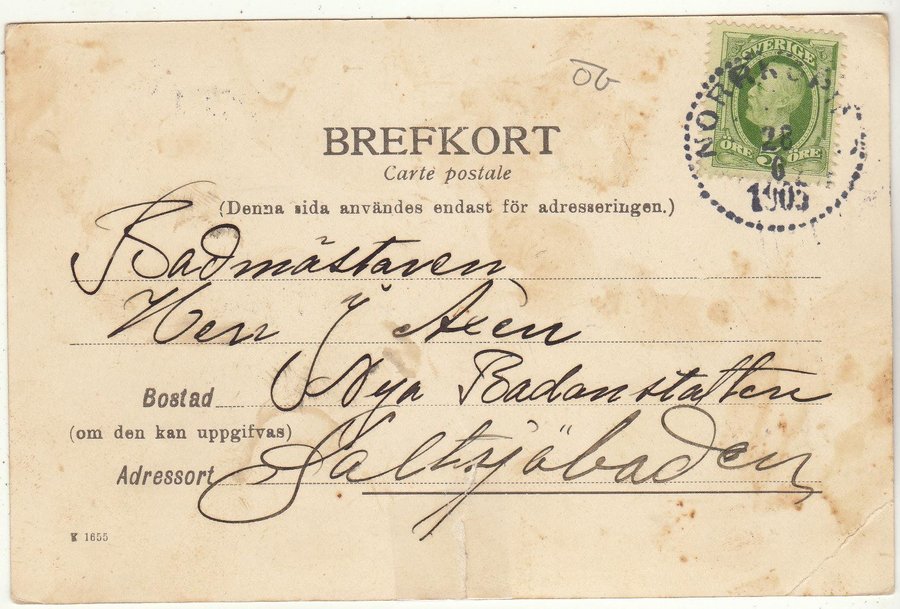 SVERIGE
ÖRE 5 ÖRE
NORRKÖPING
28
6
1905
BREFKORT
Carte postale
(Denna sida användes endast för adresseringen.)
Badmästaren
Herr J Axén
Bostad Nya Badanstalten
(om den kan uppgifvas)
Adressort Saltsjöbaden
K 1655